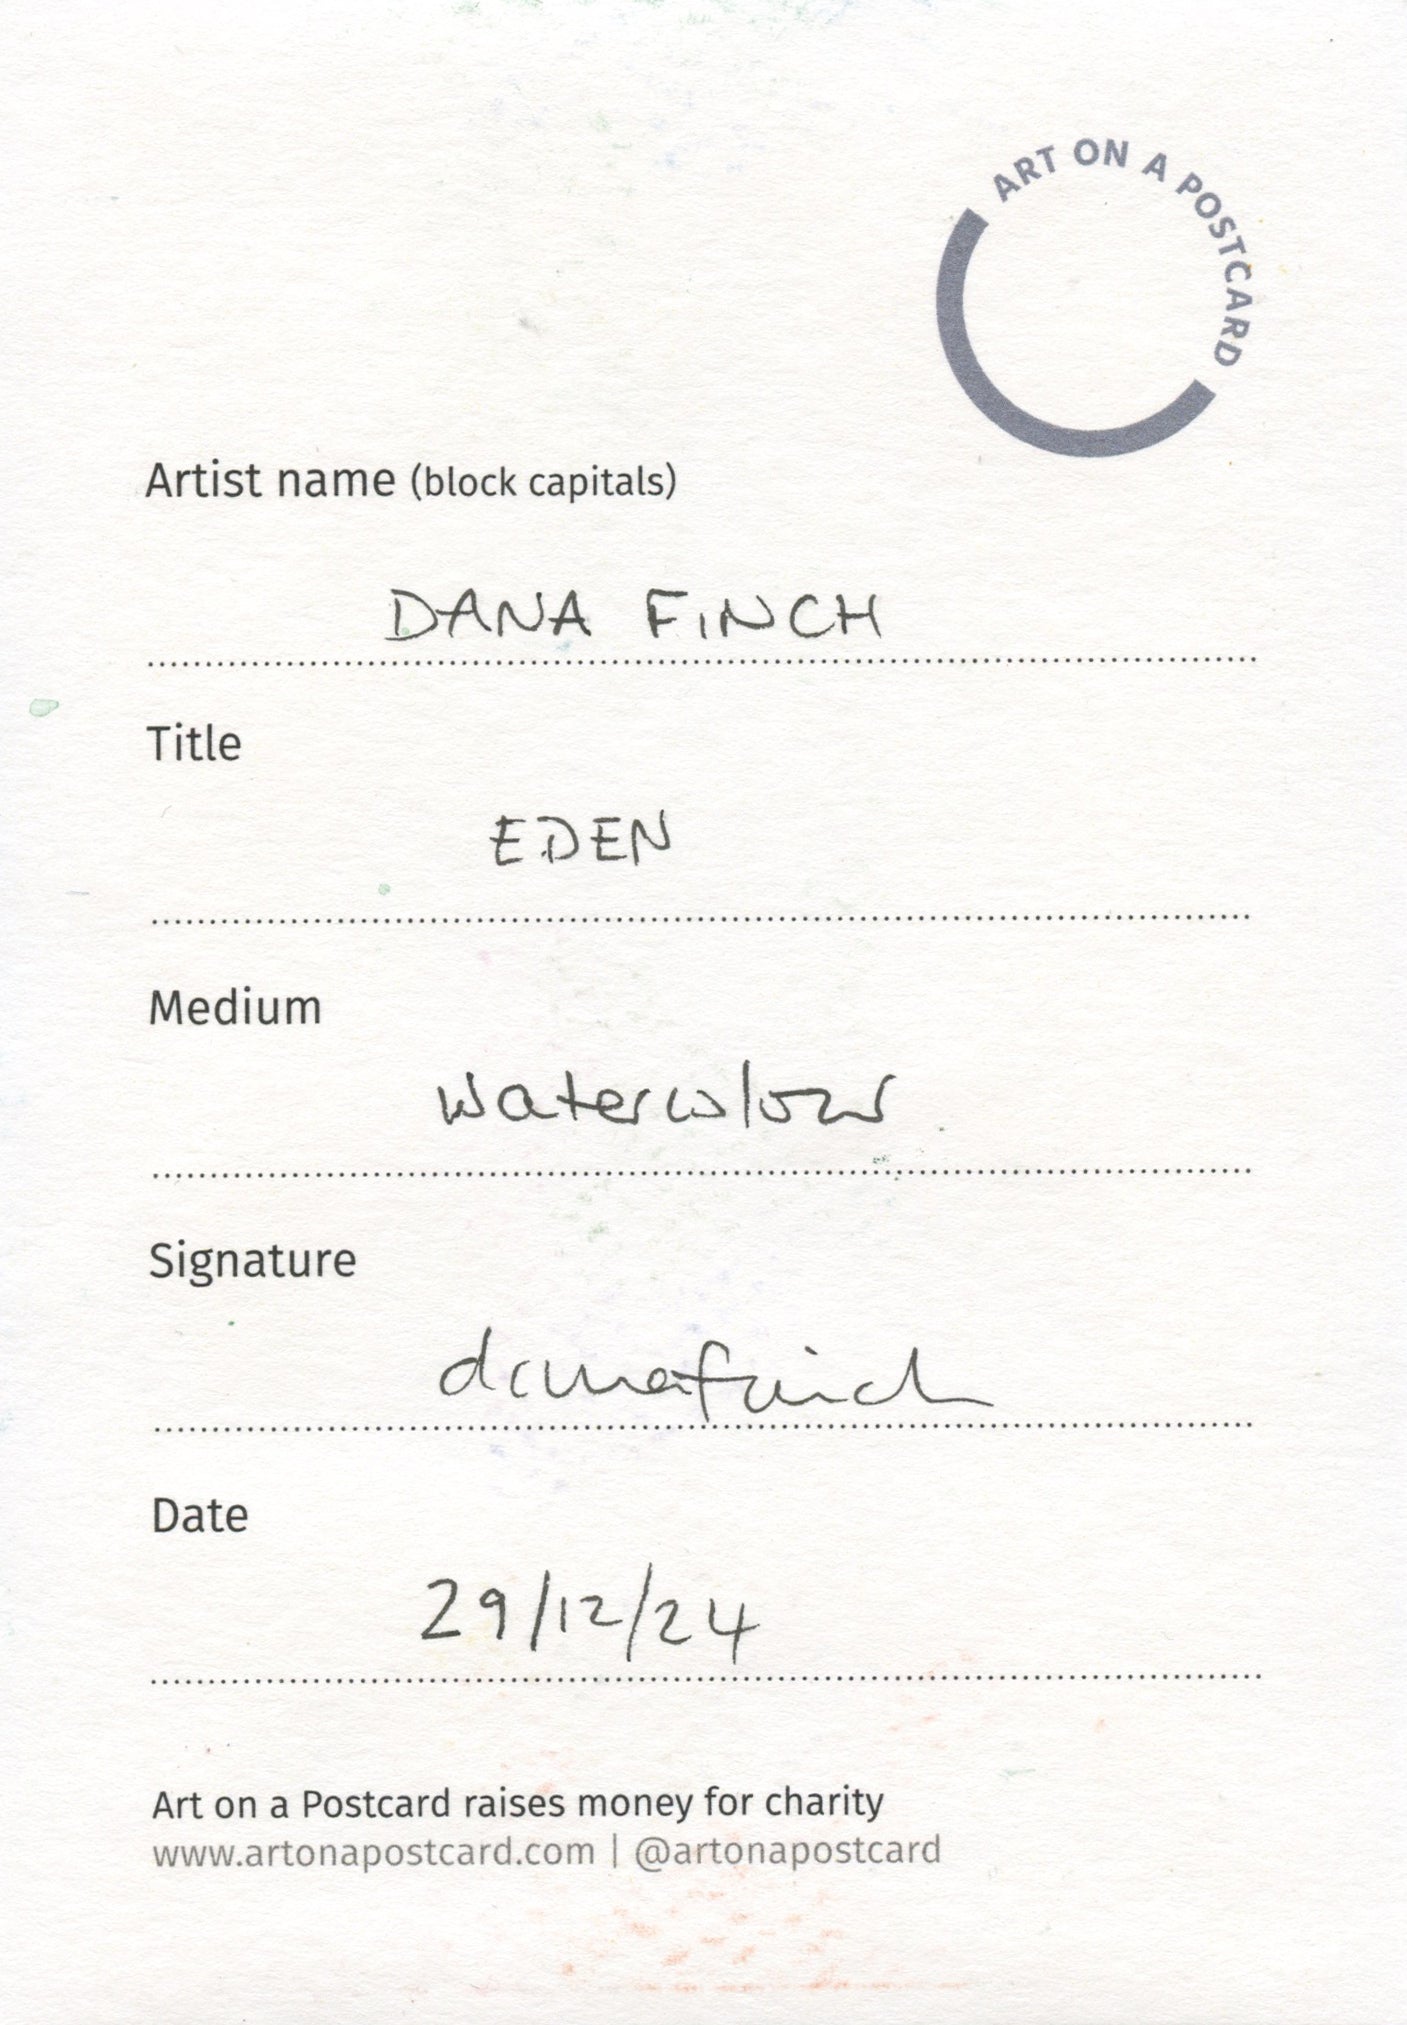 ART ON A POSTCARD
Artist name (block capitals)
DANA FINCH
Title
EDEN
Medium
Watercolour
Signature
danafinch
Date
29/12/24
Art on a Postcard raises money for charity
www.artonapostcard.com | @artonapostcard